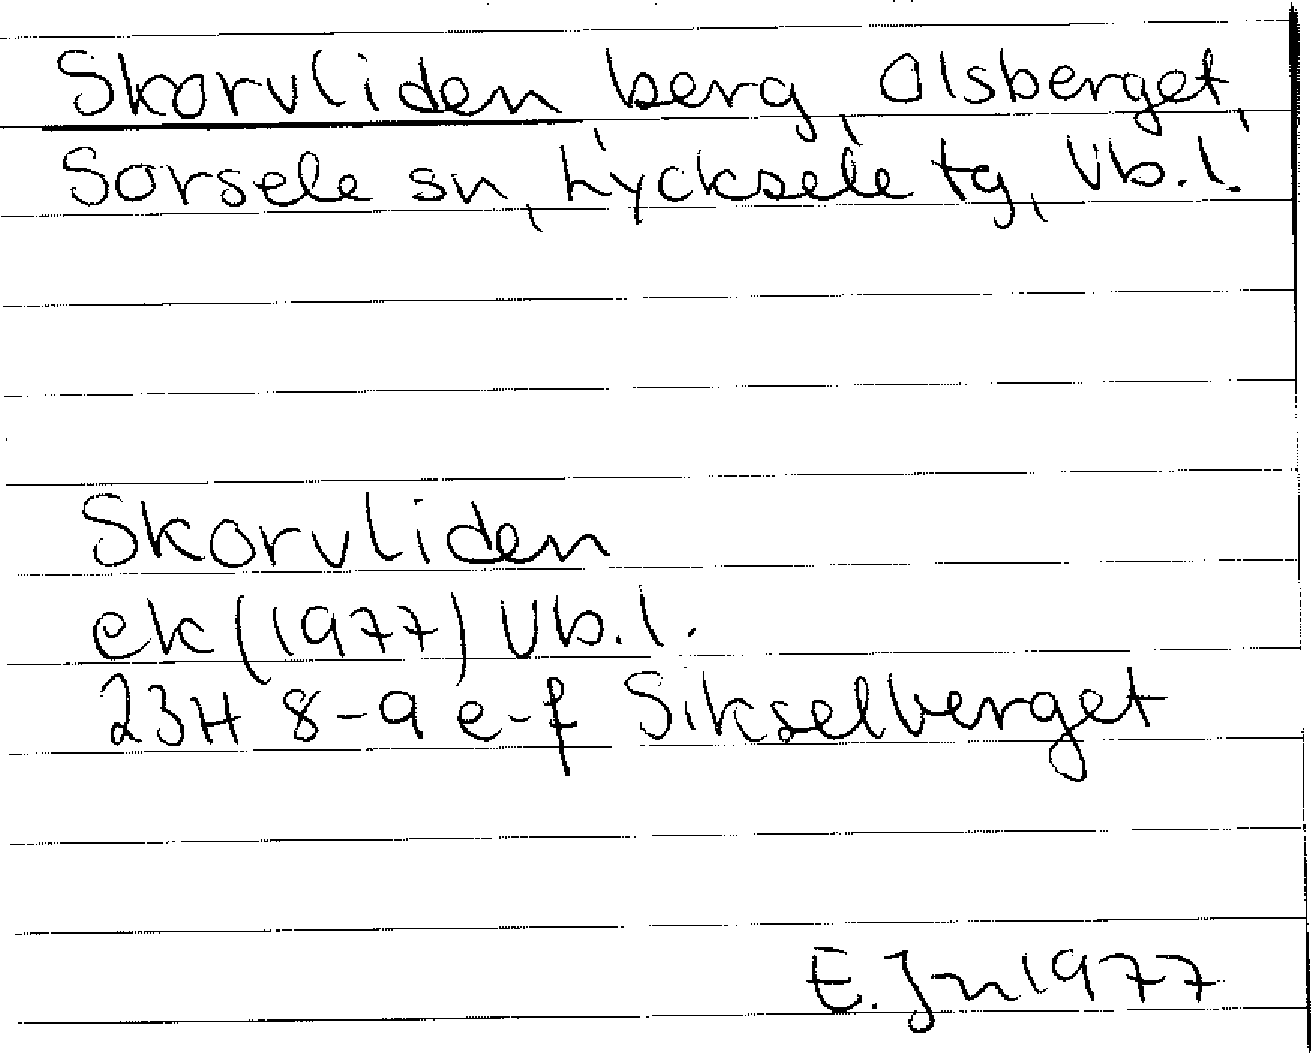 Skorvliden berg, Olsberget,
Sorsele sn, Lycksele tg, Vb.l.
Skorvliden
ek (1977) Vb.l.
23H 8-9 e-f Sikselberget
E. Jn 1977